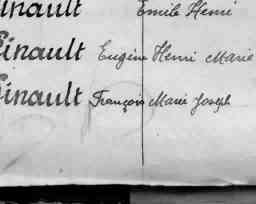 inault Emile Henri
inault Eugène Henri Marie
inault François Marie Joseph